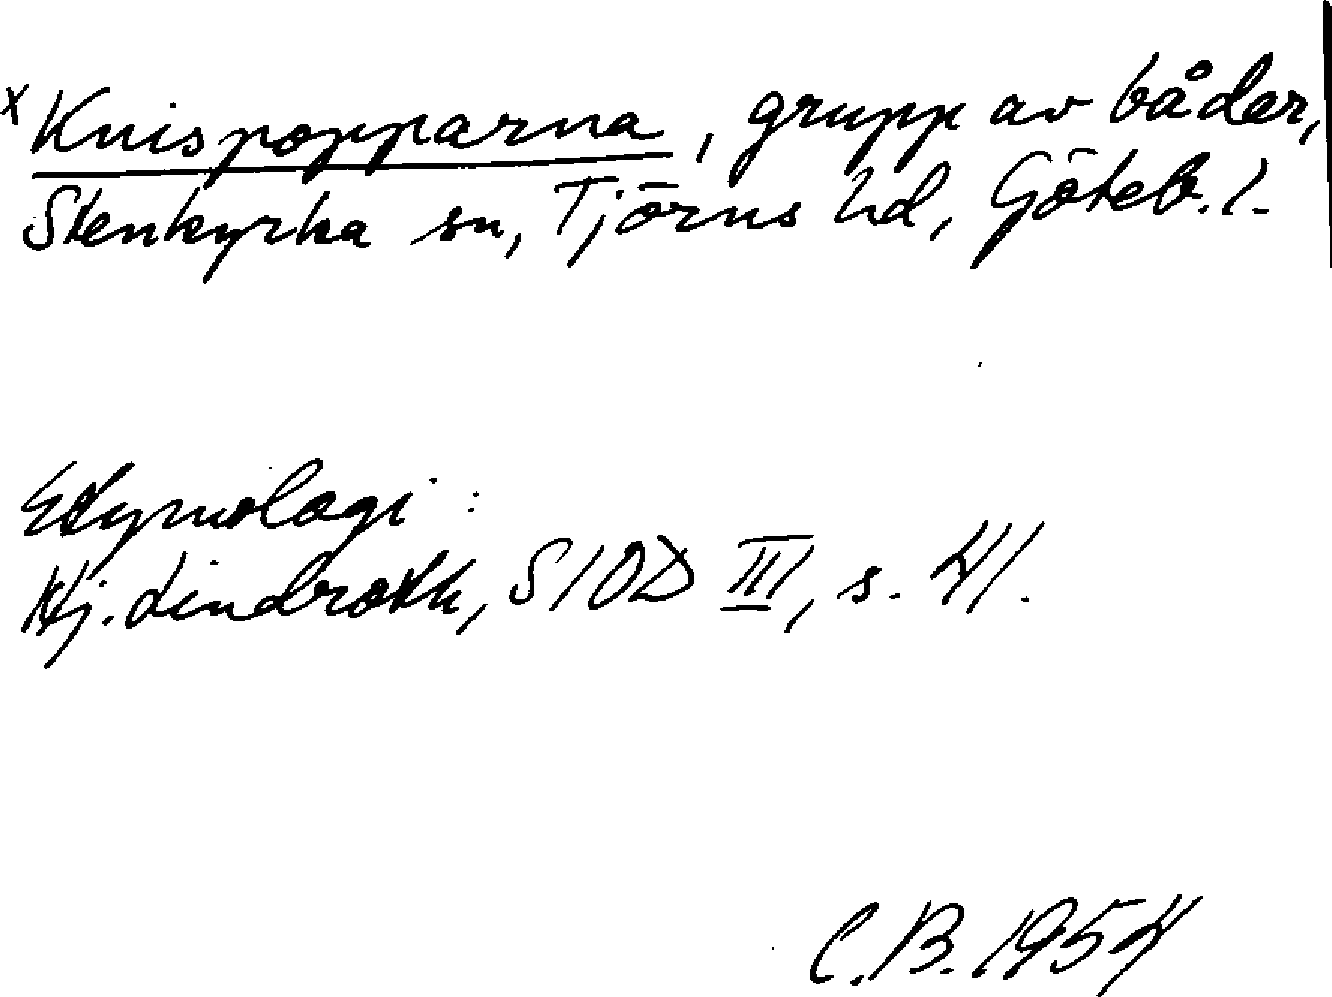 x Knispopparna, grupp av båder,
Stenkyrka sn, Tjörns hd, Göteb. l.
Etymologi:
Hj. Lindroth, SIOD III, s. 41.
C.B. 1954